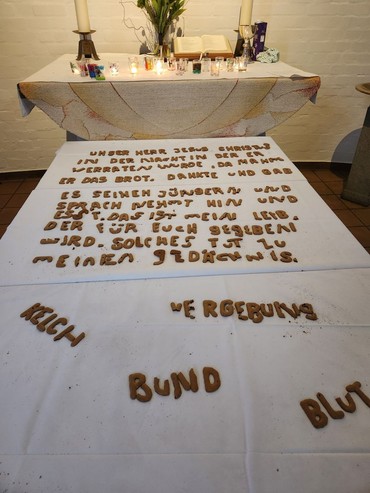 UNSER HERR JESUS CHRISTUS
IN DER NACHT IN DER ER
VERRATEN WURDE, DA NAHM
ER DAS BROT, DANKTE UND GAB
ES SEINEN JÜNGERN UND
SPRACH NEHMT HIN UND
ESST. DAS IST MEIN LEIB.
DER FÜR EUCH GEGEBEN
WIRD. SOLCHES TUT ZU
MEINEM GEDÄCHNIS.
KELCH
VERGEBUNG
BUND
BLUT